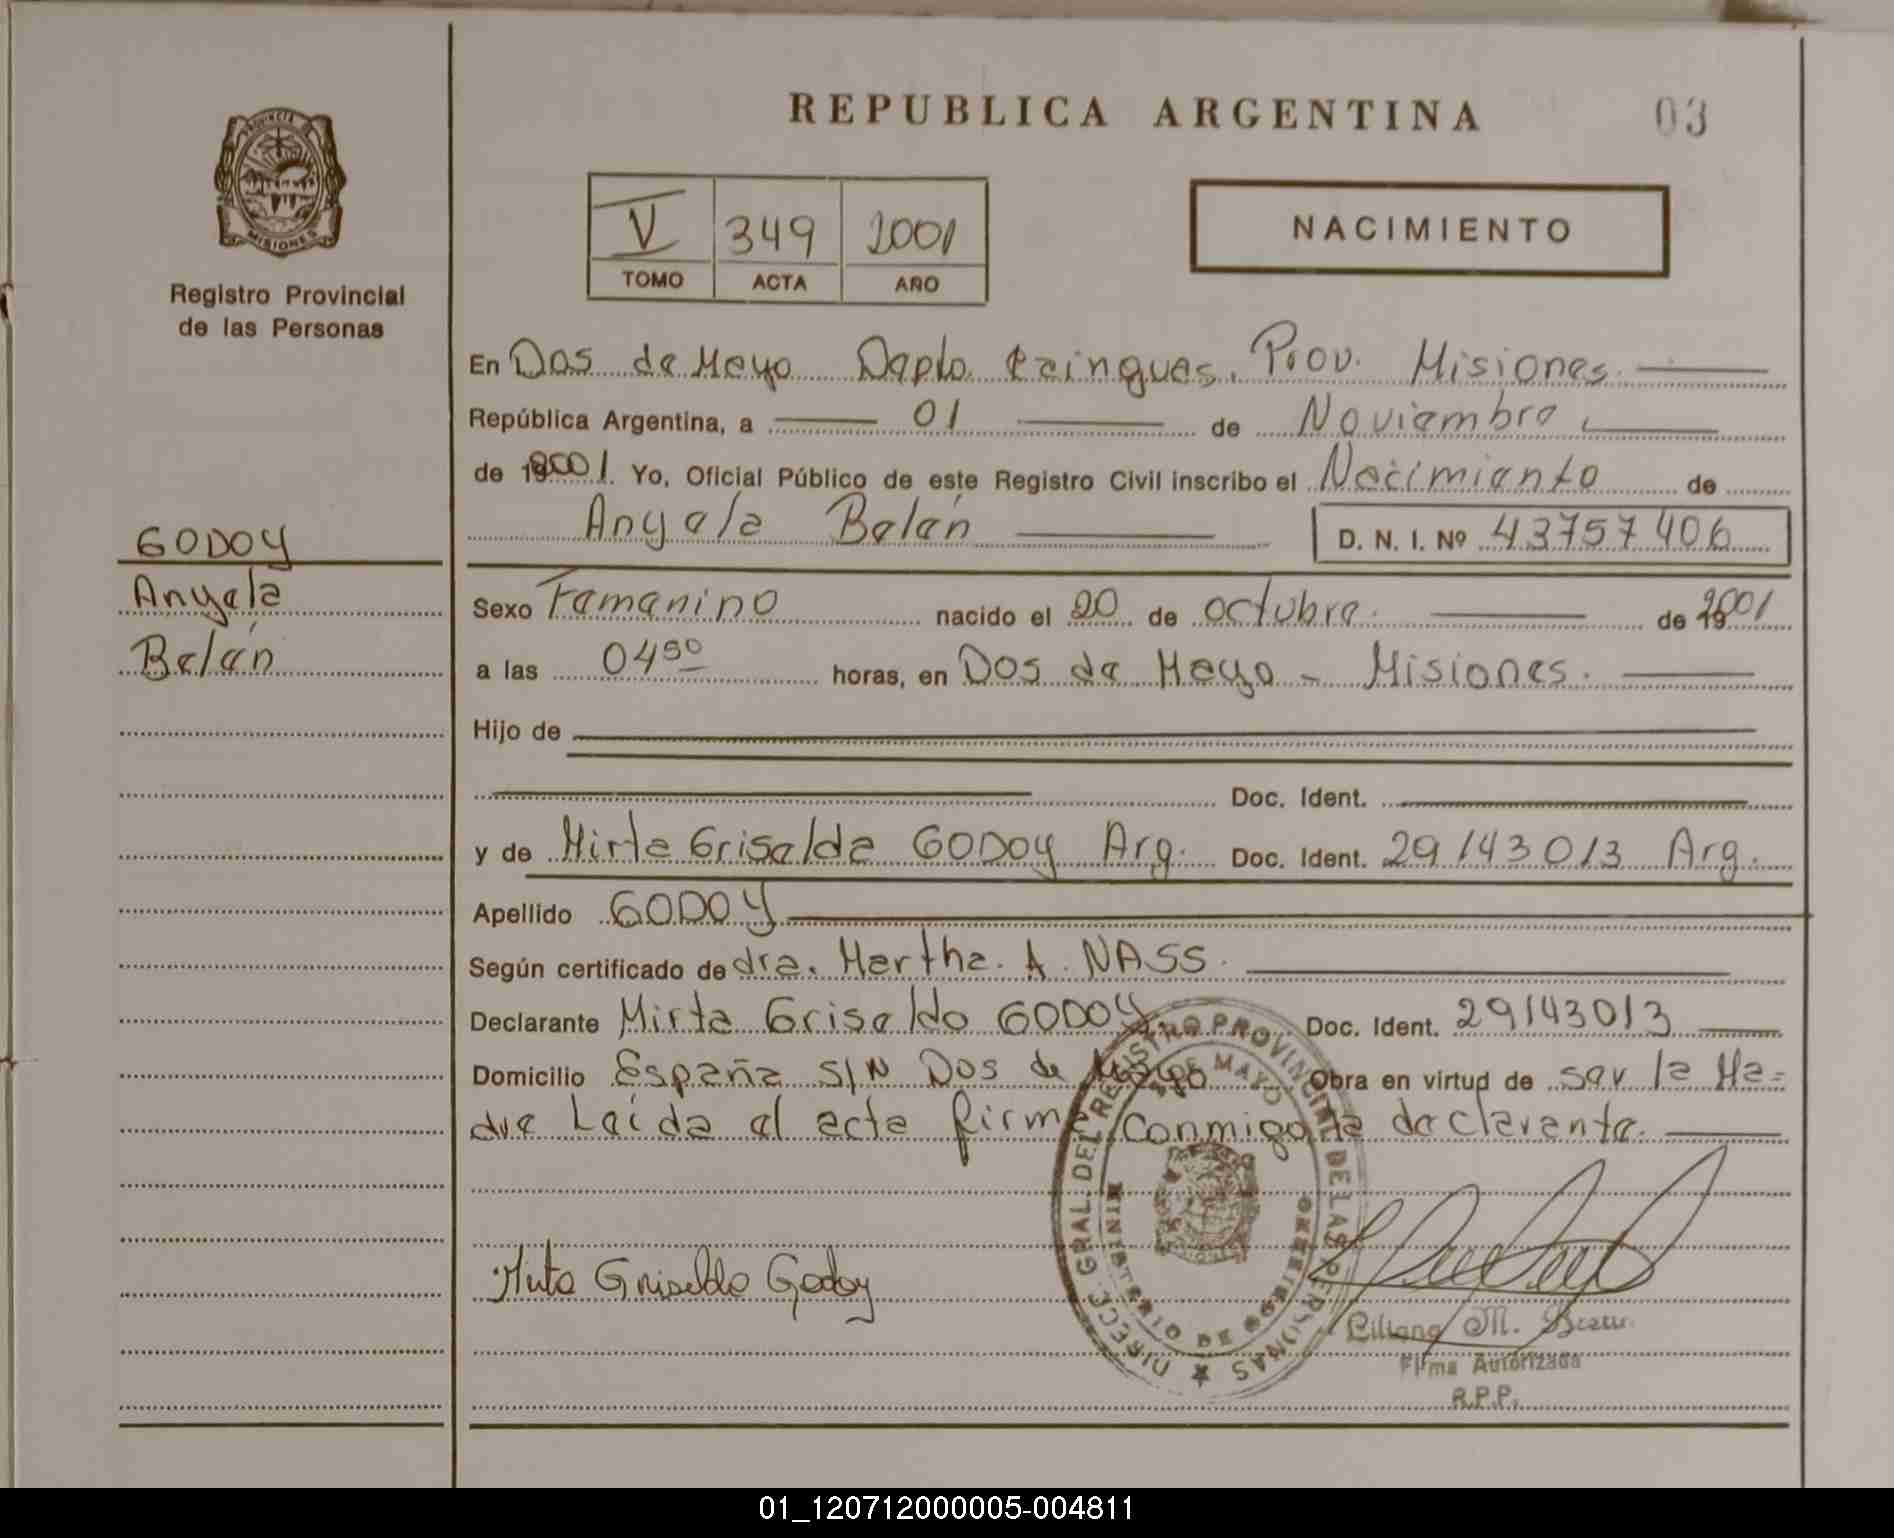 REPUBLICA ARGENTINA
03
PROVINCIA DE
MISIONES
Registro Provincial
de las Personas
V 349 2001
TOMO ACTA AÑO
NACIMIENTO
En Dos de Mayo Depto. Cainguas. Prov. Misiones
República Argentina, a 01 de Noviembre
de 2001. Yo, Oficial Público de este Registro Civil inscribo el Nacimiento de
Anyela Belén D. N. I. Nº 43757406
GODOY
Anyela
Belén
Sexo Femenino nacido el 20 de octubre. de 2001
a las 04 50 horas, en Dos de Mayo - Misiones.
Hijo de
Doc. Ident.
y de Mirta Griselda GODOY Arg. Doc. Ident. 29143013 Arg.
Apellido GODOY
Según certificado de dra. Martha. A. NASS.
Declarante Mirta Griselda GODOY Doc. Ident. 29143013
Domicilio España S/N Dos de Mayo Obra en virtud de ser la Ma=
dre Leída el acta firma conmigo la declarante.
DIRECC. GRAL. DEL REGISTRO PROVINCIAL DE LAS PERSONAS
DOS DE MAYO
MINISTERIO DE GOBIERNO
Mirta Griselda Godoy
Liliana M.
Firma Autorizada
R.P.P.
01_120712000005-004811